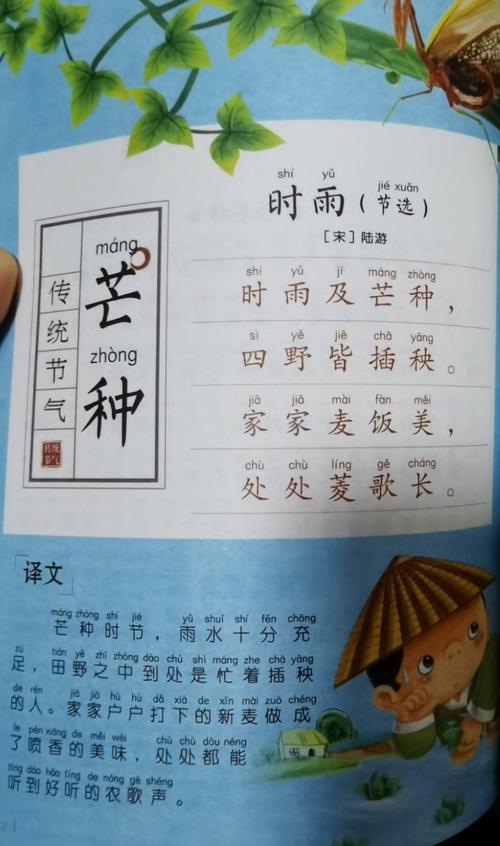 shí yǔ jié xuǎn
时雨（节选）
［宋］陆游
传统节气
传统节气
máng
芒
zhòng
种
shí yǔ jí máng zhòng
时雨及芒种，
sì yě jiē chā yāng
四野皆插秧。
jiā jiā mài fàn měi
家家麦饭美，
chù chù líng gē cháng
处处菱歌长。
译文
máng zhòng shí jié yǔ shuǐ shí fēn chōng
芒种时节，雨水十分充
zú tián yě zhī zhōng dào chù shì máng zhe chā yāng
足，田野之中到处是忙着插秧
de rén jiā jiā hù hù dǎ xià de xīn mài zuò chéng
的人。家家户户打下的新麦做成
le pēn xiāng de měi wèi chù chù dōu néng
了喷香的美味，处处都能
tīng dào hǎo tīng de nóng gē shēng
听到好听的农歌声。